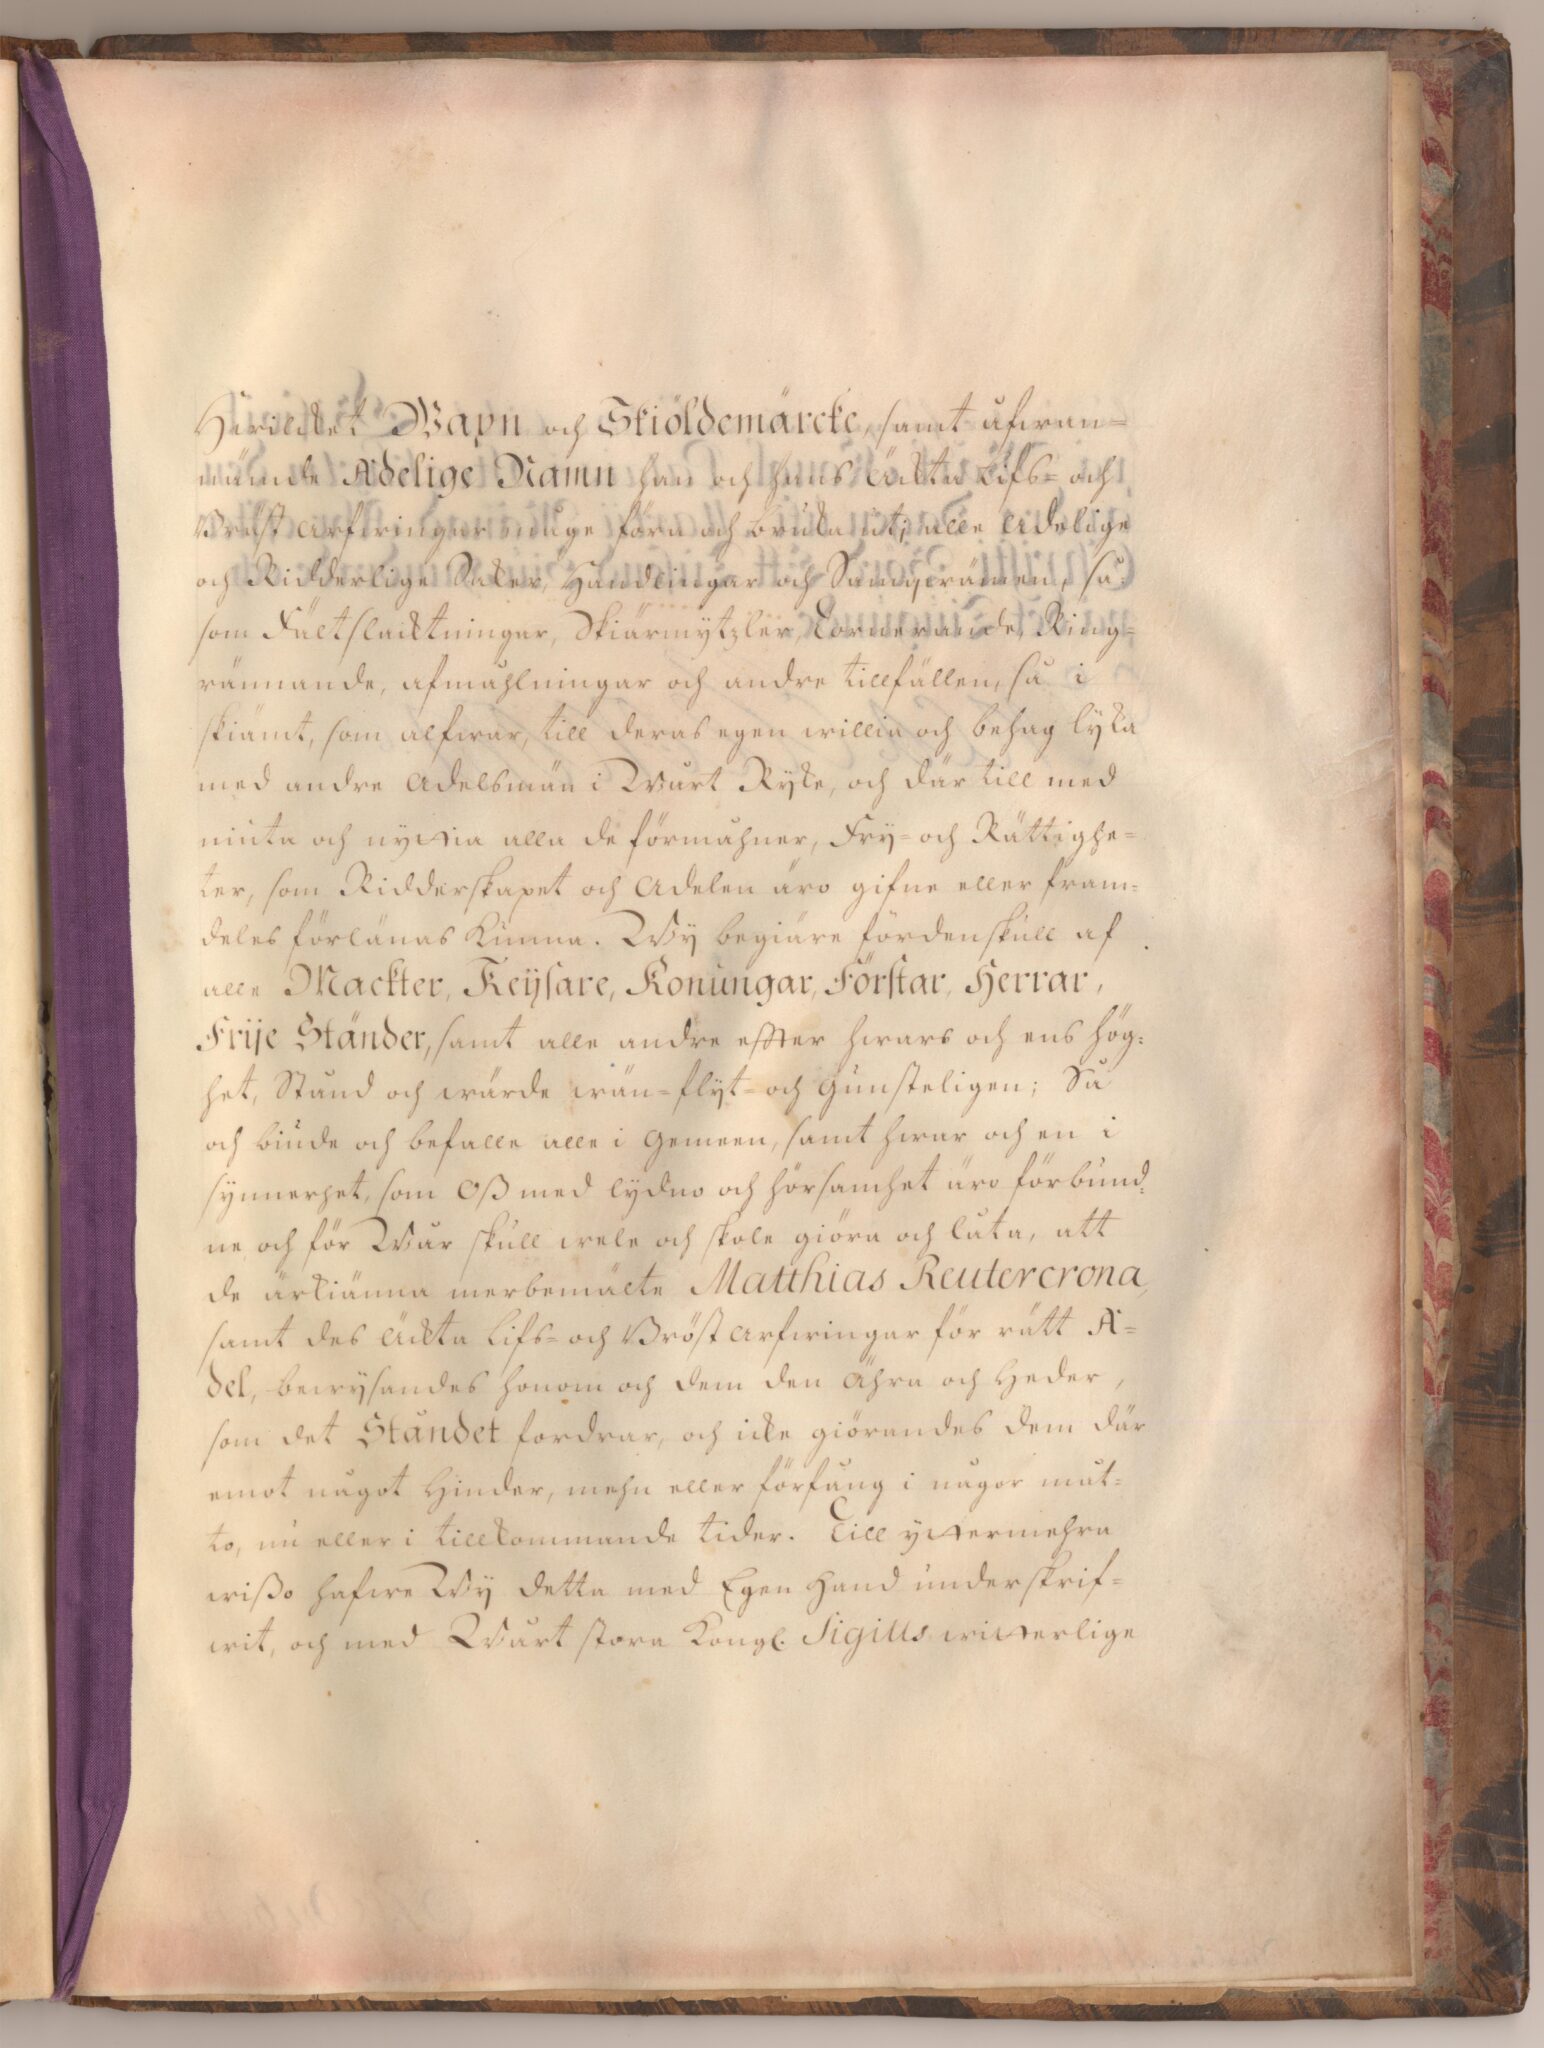 Hwilcket Wapn och Skiöldemärcke, samt ofwan-
nämde Adelige Namn han och hans Ächta Lifs- och
Bröst Arfwingar måge föra och bruka uti alle Adelige
och Ridderlige Saker, Handlingar och Samqwämen, så
som Fältslachtningar, Skiärmytzler, Tornerande, Ring-
rännande, afmåhlningar och andre tillfällen, så i
skiämt, som alfwar, till deras egen willia och behag lyka
med andre Adelsmän i Wårt Ryke, och där till med
niuta och nyttia alla de förmåhner, Fry- och Rättighe-
ter, som Ridderskapet och Adelen äro gifne eller fram-
deles förlänas kunna. Wy begiäre fördenskull af
alle Mackter, Keysare, Konungar, Förstar, Herrar,
Frije Ständer, samt alle andre effter hwars och ens hög-
het, Stånd och wärde wän- flyt- och Gunsteligen; Så
och biude och befalle alle i Gemeen, samt hwar och en i
synnerhet, som Oß med lydno och hörsamhet äro förbund-
ne och för Wår skull wele och skole giöra och låta, att
de ärkiänna merbemälte Matthias Reutercrona,
samt des Ächta Lifs- och Bröst Arfwingar för rätt A-
del, bewysandes honom och dem den Ähra och Heder,
som det Ståndet fordrar, och icke giörandes dem där
emot något Hinder, mehn eller förfång i någor måt-
to, nu eller i tillkommande tider. Till yttermehra
wißo hafwe Wy detta med Egen Hand underskrif-
wit, och med Wårt stora Kongl. Sigills witterlige